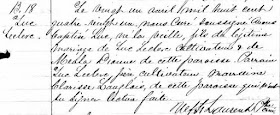 B. 18 Le vingt un avril mil huit cent
Luc quatre vingt un nous Curé soussigné avons
Leclerc baptisé Luc, né la veille, fils du légitime
mariage de Luc Leclerc cultivateur & de
de cette paroisse. Parrain
Luc Leclerc, cultivateur marraine
Langlais, de cette paroisse qui n'ont
pu signer lecture faite.